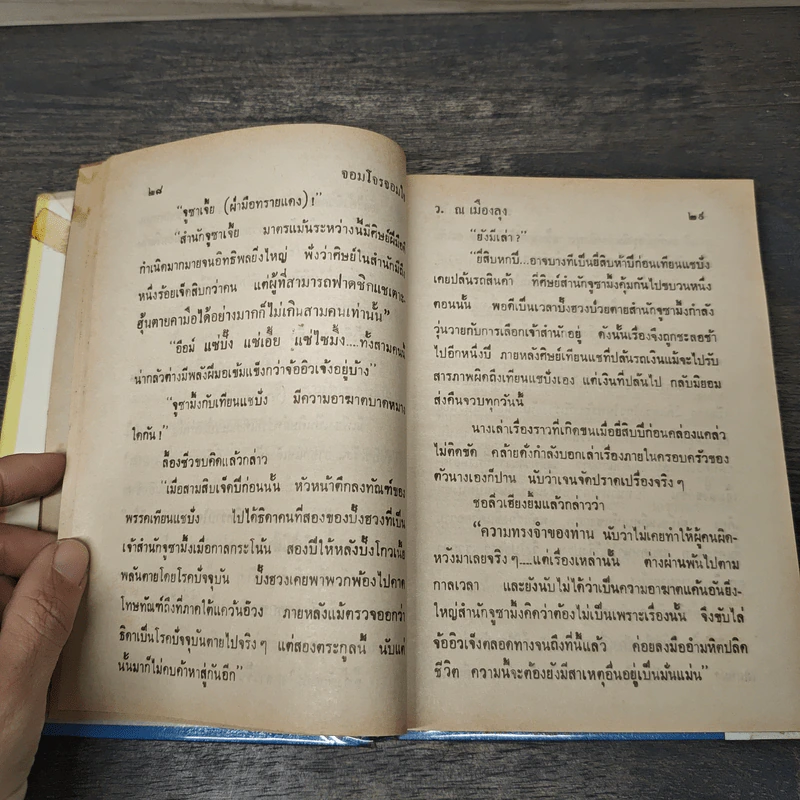 ๒๘
จอมโจรจอมใจ
"จูซาเจี้ย (ฝ่ามือทรายแดง)!"
"สำนักจูซาเจี้ย มาตรแม้นระหว่างนี้มีศิษย์ฝีมือ
กำเนิดมากมายจนอิทธิพลยิ่งใหญ่ ฟังว่าศิษย์ในสำนักมีถึง
หนึ่งร้อยเจ็ดสิบกว่าคน แต่ผู้ที่สามารถฟาดชิกแชเตาะ
ฮุ้นตายคามือได้อย่างมากก็ไม่เกินสามคนเท่านั้น"
"อือม์ แซ่ปึง แซ่เอี้ย แซ่ไซมึ้ง....ทั้งสามคนนี้
น่ากลัวต่างมีพลังฝีมือเข้มแข็งกว่าจ้ออิวเจ้งอยู่บ้าง"
"จูซามึ้งกับเทียนแชปัง มีความอาฆาตบาดหมาง
ใดกัน!"
ล้องชิวขบคิดแล้วกล่าว
"เมื่อสามสิบเจ็ดปีก่อนนั้น หัวหน้าตึกลงทัณฑ์ของ
พรรคเทียนแชปัง ไปได้ธิดาคนที่สองของปึงฮวงที่เป็น
เจ้าสำนักจูซามึ้งเมื่อกาลกระโน้น สองปีให้หลังปึงโกวเนี้ย
พลันตายโดยโรคปัจจุบัน ปึงฮวงเคยพาพวกพ้องไปคาด
โทษทัณฑ์ถึงที่ภาคใต้แคว้นอ๊วง ภายหลังแม้ตรวจออกว่า
ธิดาเป็นโรคปัจจุบันตายไปจริงๆ แต่สองตระกูลนี้ นับแต่
นั้นมาก็ไม่คบค้าหาสู่กันอีก"
ว. ณ เมืองลุง
๒๙
"ยังมีเล่า?"
"ยี่สิบหกปี...อาจบางทีเป็นยี่สิบห้าปีก่อนเทียนแชปัง
เคยปล้นรถสินค้า ที่ศิษย์สำนักจูซามึ้งคุ้มกันไปขบวนหนึ่ง
ตอนนั้น พอดีเป็นเวลาปึงฮวงป่วยตายสำนักจูซามึ้งกำลัง
วุ่นวายกับการเลือกเจ้าสำนักอยู่ ดังนั้นเรื่องจึงถูกชะลอช้า
ไปอีกหนึ่งปี ภายหลังศิษย์เทียนแชที่ปล้นรถเงินแม้จะไปรับ
สารภาพผิดถึงเทียนแชปังเอง แต่เงินที่ปล้นไป กลับมิยอม
ส่งคืนจวบทุกวันนี้
นางเล่าเรื่องราวที่เกิดขนเมื่อยี่สิบปีก่อนคล่องแคล่ว
ไม่ติดขัด คล้ายดั่งกำลังบอกเล่าเรื่องภายในครอบครัวของ
ตัวนางเองก็ปาน นับว่าเจนจัดปราดเปรื่องจริงๆ
ซอลิ่วเฮียงยิ้มแล้วกล่าวว่า
"ความทรงจำของท่าน นับว่าไม่เคยทำให้ผู้คนผิด-
หวังมาเลยจริงๆ....แต่เรื่องเหล่านั้น ต่างผ่านพ้นไปตาม
กาลเวลา และยังนับไม่ได้ว่าเป็นความอาฆาตแค้นอันยิ่ง-
ใหญ่สำนักจูซามึ้งคิดว่าต้องไม่เป็นเพราะเรื่องนั้น จึงขับไล่
จ้ออิวเจ็งตลอดทางจนถึงที่นี้แล้ว ค่อยลงมืออำมหิตปลิด
ชีวิต ความนี้จะต้องยังมีสาเหตุอื่นอยู่เป็นมั่นแม่น"